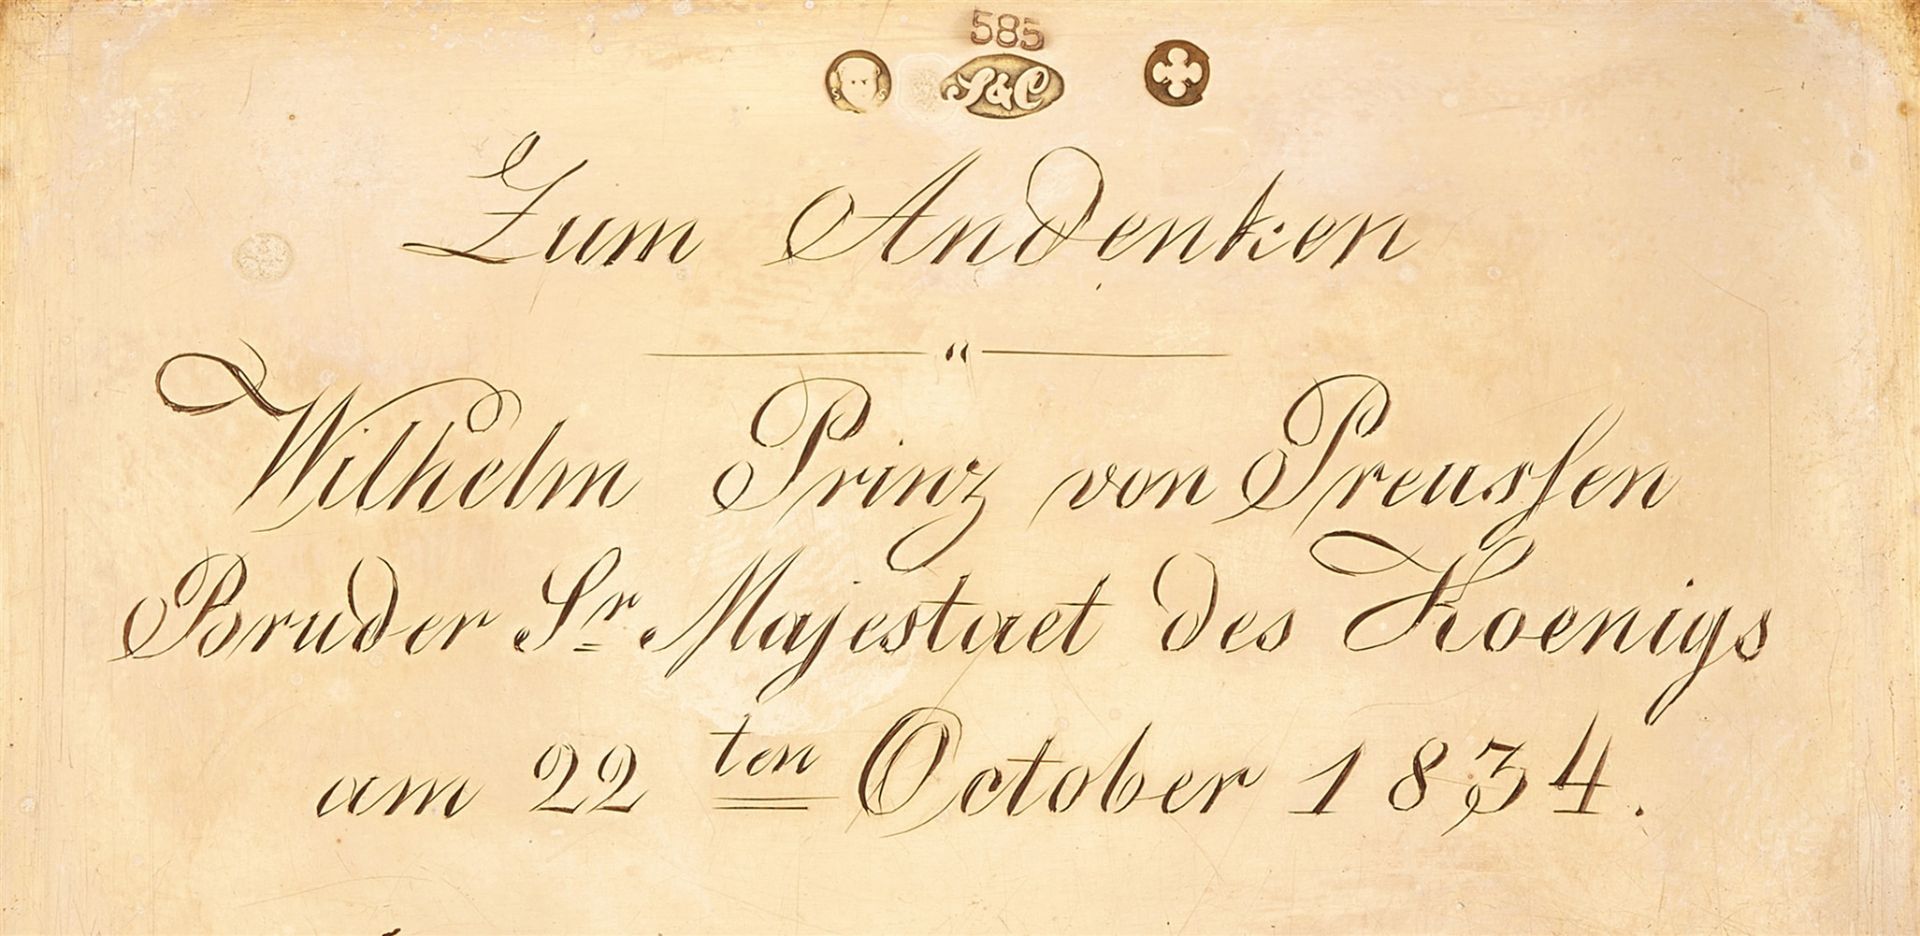 585
S&C
Zum Andenken
Wilhelm Prinz von Preussen
Bruder Sr Majestaet des Koenigs
am 22 ten October 1834.